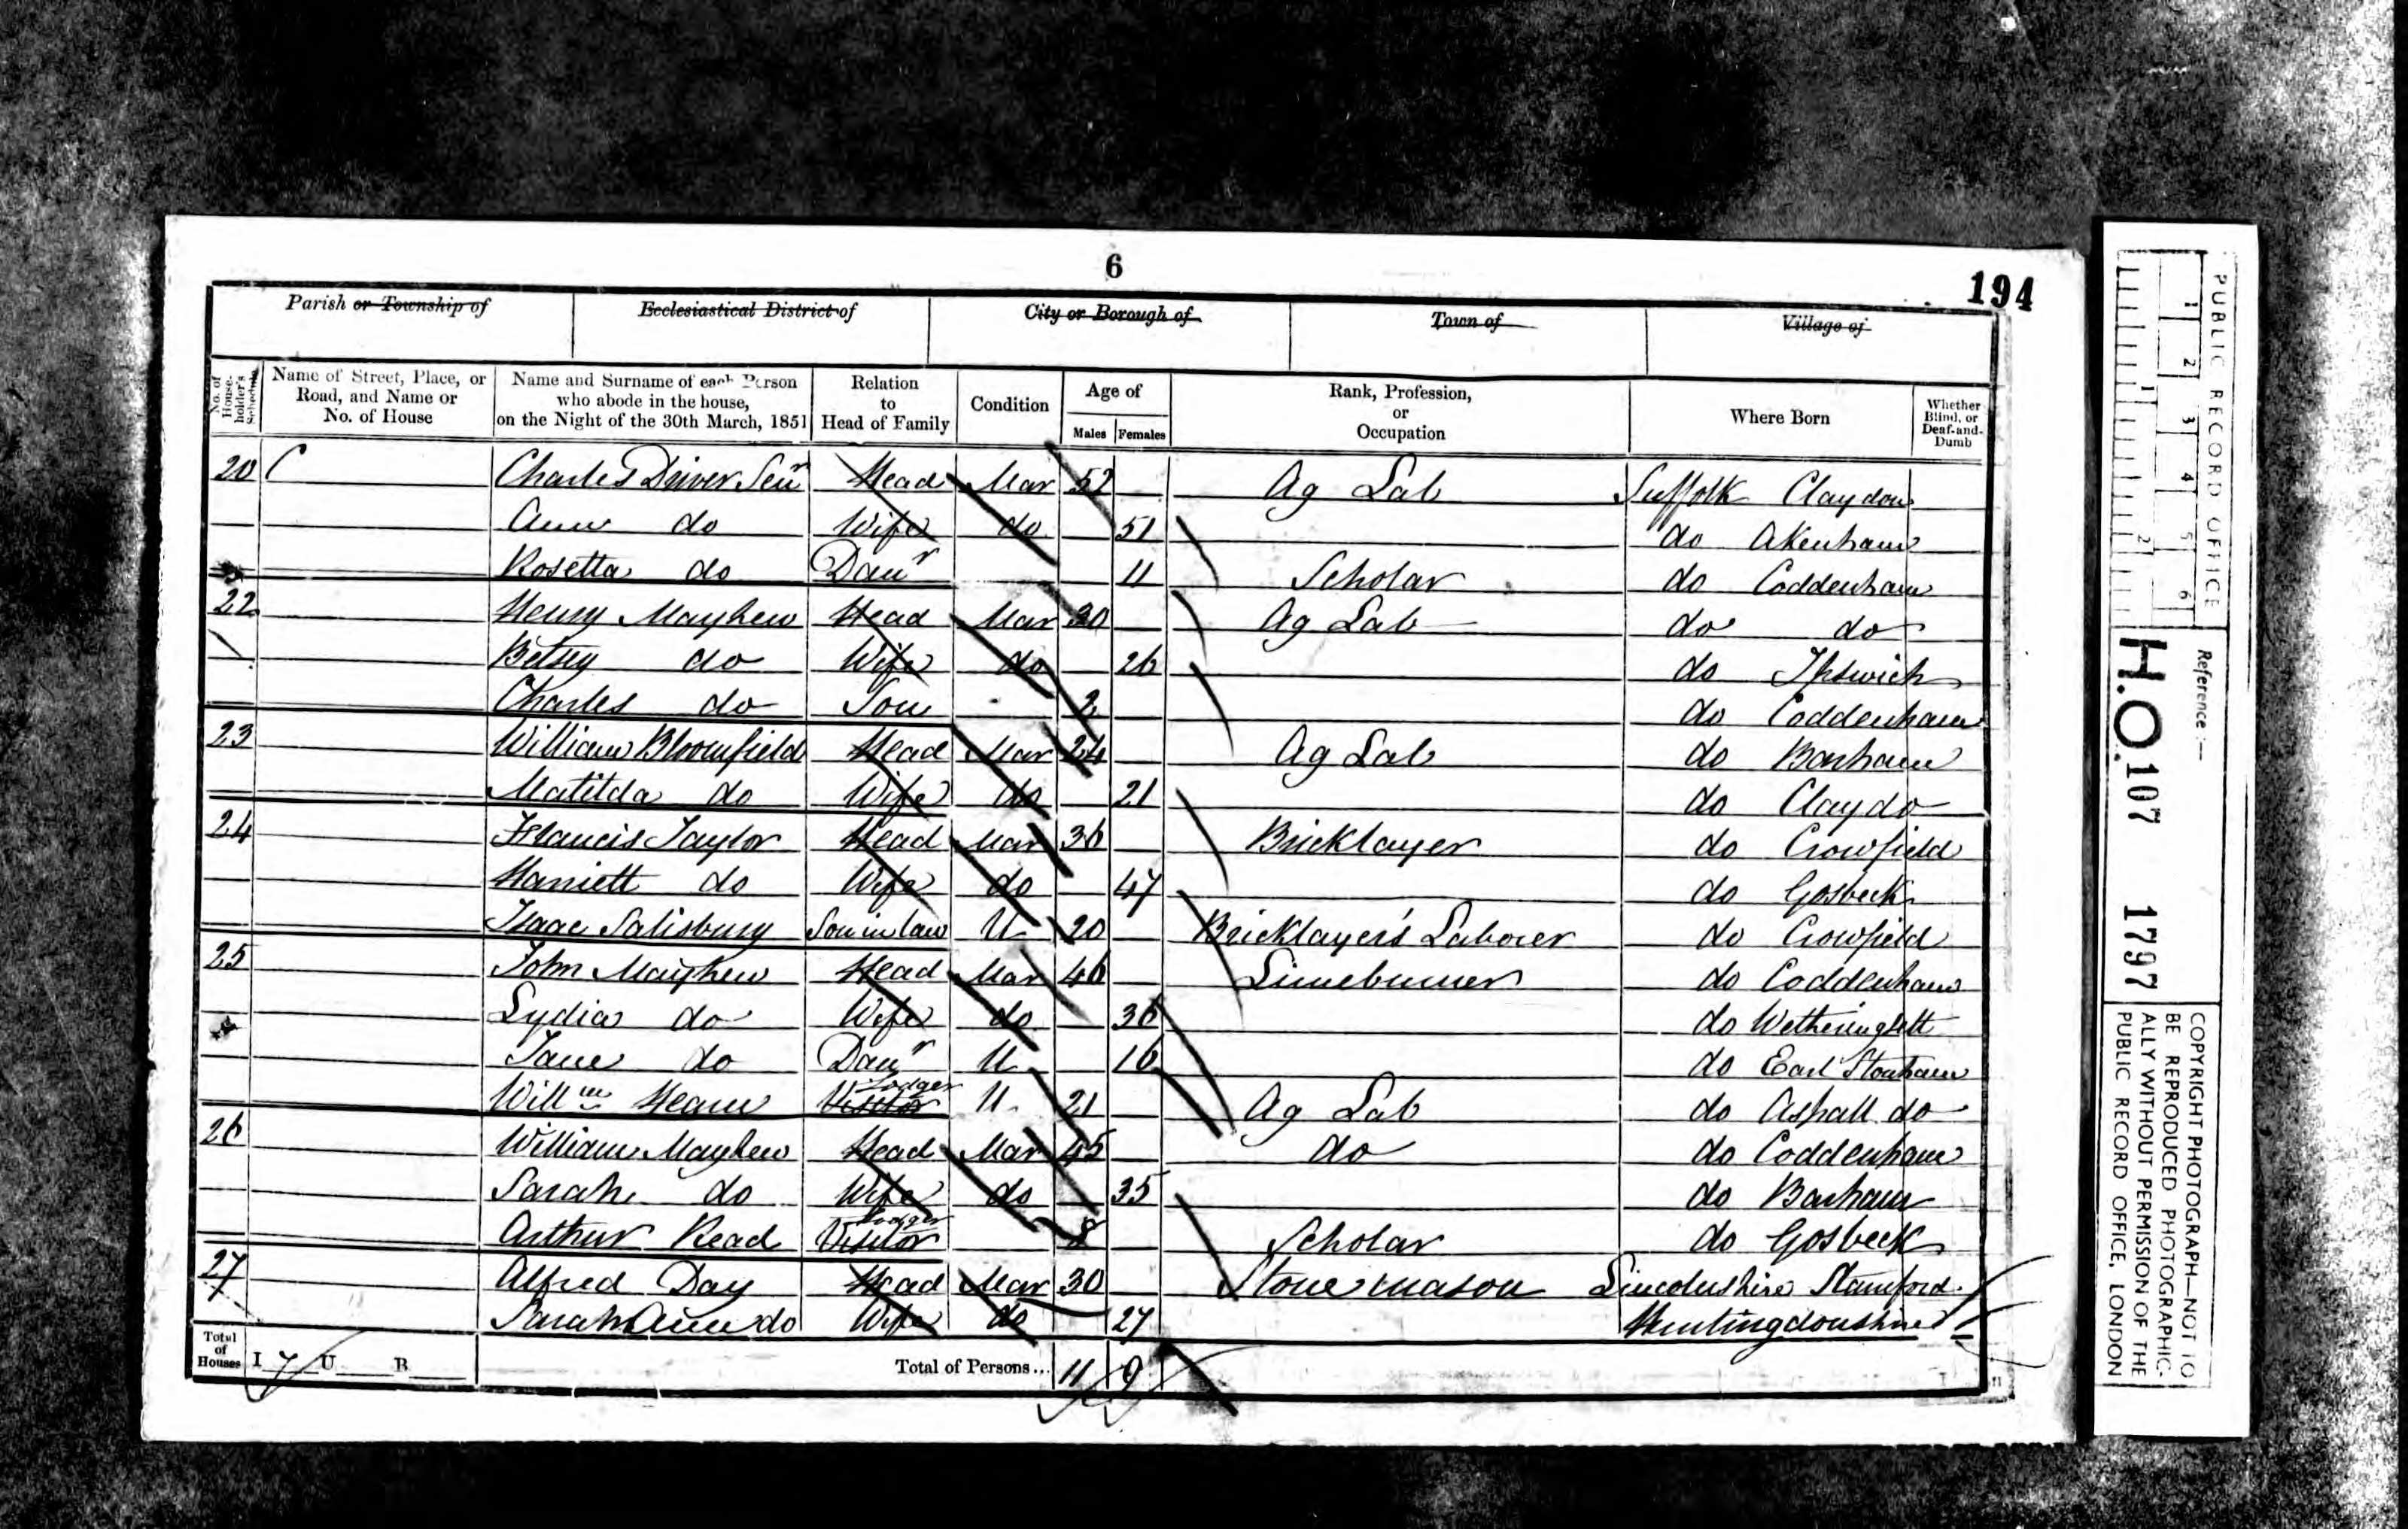 6
194
Parish or Township of Ecclesiastical District of City or Borough of Town of Village of
No. of House-holder's Schedule
Name of Street, Place, or Road, and Name or No. of House
Name and Surname of each Person who abode in the house, on the Night of the 30th March, 1851
Relation to Head of Family
Condition
Age of
Males Females
Rank, Profession, or Occupation
Where Born
Whether Blind, or Deaf-and-Dumb
20 C Charles Driver Senr Head Mar 52 Ag Lab Suffolk Claydon
Ann do Wife do 51 do Akenham
Rosetta do Daur 11 Scholar do Coddenham
22 Henry Mayhew Head Mar 30 Ag Lab do do
Betsey do Wife do 26 do Ipswich
Charles do Son 2 do Coddenham
23 William Bloomfield Head Mar 24 Ag Lab do Barham
Matilda do Wife do 21 do Claydo
24 Francis Taylor Head Mar 36 Bricklayer do Crowfield
Harriett do Wife do 47 do Gosbeck
Isaac Salisbury Son in law U 20 Bricklayer's Laborer do Crowfield
25 John Mayhew Head Mar 46 Limeburner do Coddenham
Lydia do Wife do 36 do Wetheringsett
Jane do Daur U 16 do Earl Stonham
Willm Hearn Visitor Lodger U 21 Ag Lab do Ashall do
26 William Mayhew Head Mar 45 do do Coddenham
Sarah do Wife do 35 do Barham
Arthur Read Visitor Lodger 8 Scholar do Gosbeck
27 Alfred Day Head Mar 30 Stone mason Lincolnshire Stamford
Sarah Ann do Wife do 27 Huntingdonshire
Total of Houses I 7 U B Total of Persons... 11 9
PUBLIC RECORD OFFICE
1 2 3 4 5 6
1 2
Reference:-
H.O. 107 1797
COPYRIGHT PHOTOGRAPH—NOT TO
BE REPRODUCED PHOTOGRAPHIC-
ALLY WITHOUT PERMISSION OF THE
PUBLIC RECORD OFFICE, LONDON